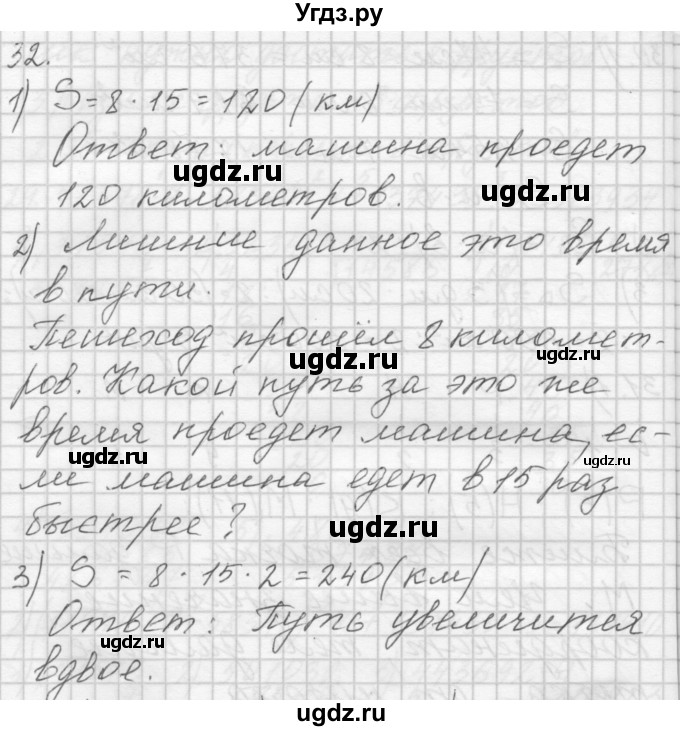 Угдз.ру
32.
1) S = 8 · 15 = 120 (км)
Ответ: машина проедет
ugdz.ru
ugdz.ru
120 километров.
2) Лишние данное это время
в пути.
Пешеход прошёл 8 километ-
ugdz.ru
ugdz.ru
ров. Какой путь за это же
время проедет машина, ес-
ugdz.ru
ugdz.ru
ли машина едет в 15 раз
быстрее?
ugdz.ru
3) S = 8 · 15 · 2 = 240 (км)
Ответ: Путь увеличится
ugdz.ru
вдвое.
ugdz.ru